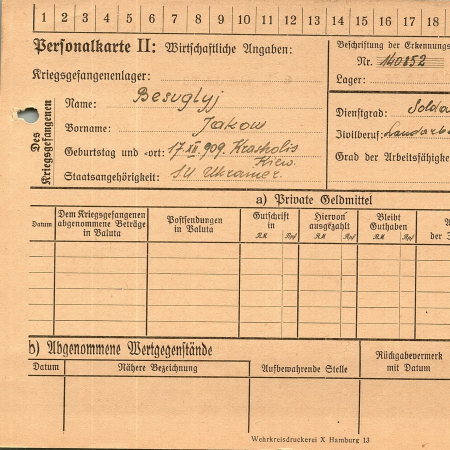 1 2 3 4 5 6 7 8 9 10 11 12 13 14 15 16 17 18
Personalkarte II: Wirtschaftliche Angaben:
Beschriftung der Erkennungs
Nr. 140852
Kriegsgefangenenlager:
Lager:
Des Kriegsgefangenen
Name: Besuglyj
Vorname: Jakow
Dienstgrad: Solda
Zivilberuf: Landarb
Geburtstag und -ort: 17.XII.909. Krasholis
Kiew.
Grad der Arbeitsfähigke
Staatsangehörigkeit: SU Ukrainer.
a) Private Geldmittel
Datum
Dem Kriegsgefangenen abgenommene Beträge in Valuta
Postsendungen in Valuta
Gutschrift in
RM Rpf
Hiervon ausgezahlt
RM Rpf
Bleibt Guthaben
RM Rpf
der
b) Abgenommene Wertgegenstände
Datum
Nähere Bezeichnung
Aufbewahrende Stelle
Rückgabevermerk mit Datum
Wehrkreisdruckerei X Hamburg 13